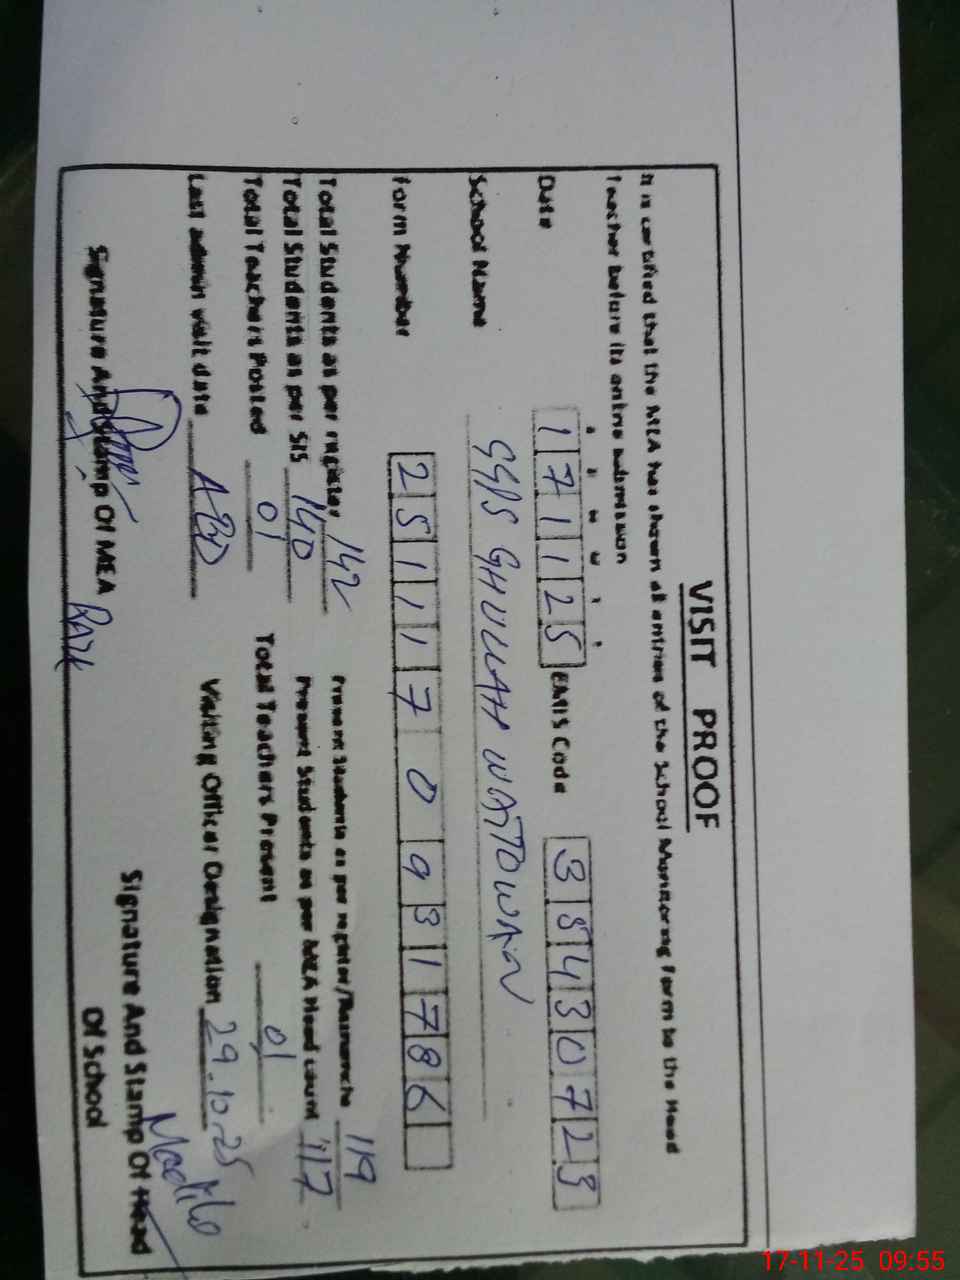 VISIT PROOF
It is certified that the MEA has shown all entries of the School Monitoring Form to the Head
Teacher before its online submission
Date 171125 EMIS Code 35430723
School Name GGPS GHULLAH WATTOWAN
Form Number 2511170931786
Total Students as per register 142 Present Students as per register/ 119
Total Students as per SIS 140 Present Students as per MEA Head count 117
Total Teachers Posted 01 Total Teachers Present 01
Last admin visit date Visiting Officer Designation 29.10.25
Signature And Stamp Of MEA
Signature And Stamp Of Head
Of School
17-11-25 09:55